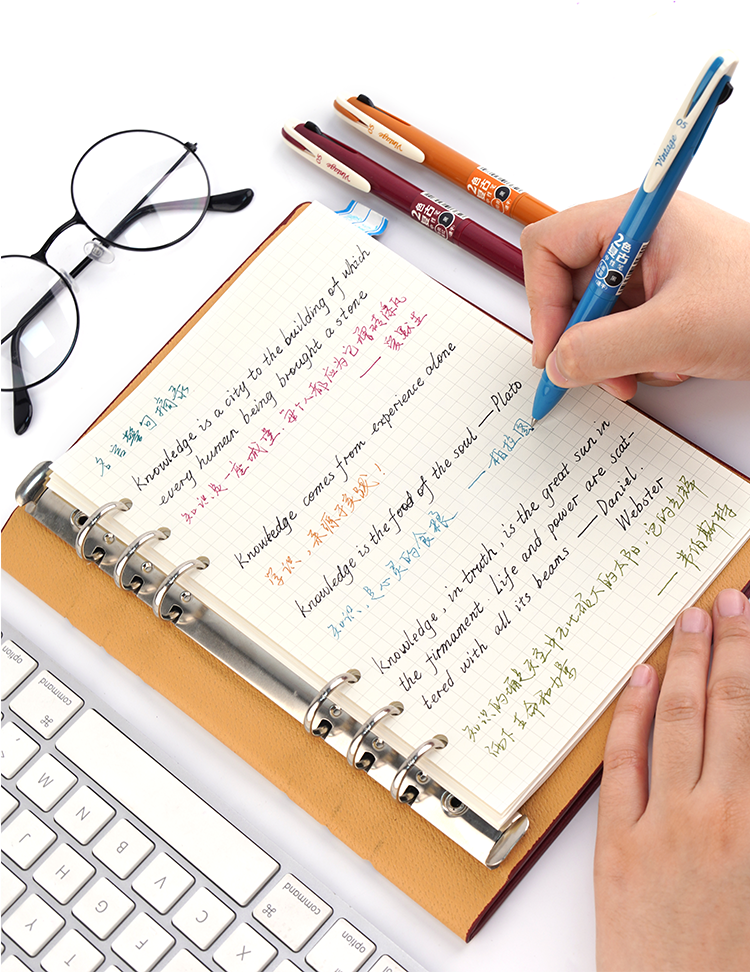 名言警句摘录
Knowledge is a city to the building of which
every human being brought a stone
知识是一座城堡,每个人都应为它增砖添瓦
——爱默生
Knowledge comes from experience alone
学识,来源于实践!
Knowledge is the food of the soul — Plato
知识,是心灵的食粮 ——柏拉图
Knowledge, in truth, is the great sun in
the firmament. Life and power are scat-
tered with all its beams — Daniel.
Webster
知识的确是天空中
洒下生命和力量
——韦伯斯特
Vintage 05
2色
复古
Vintage
2色
复古
Vintage
2色
复古
option
command
⌘
M
N
B
J
V
H
C
G
X
Y
F
T
command
⌘
option